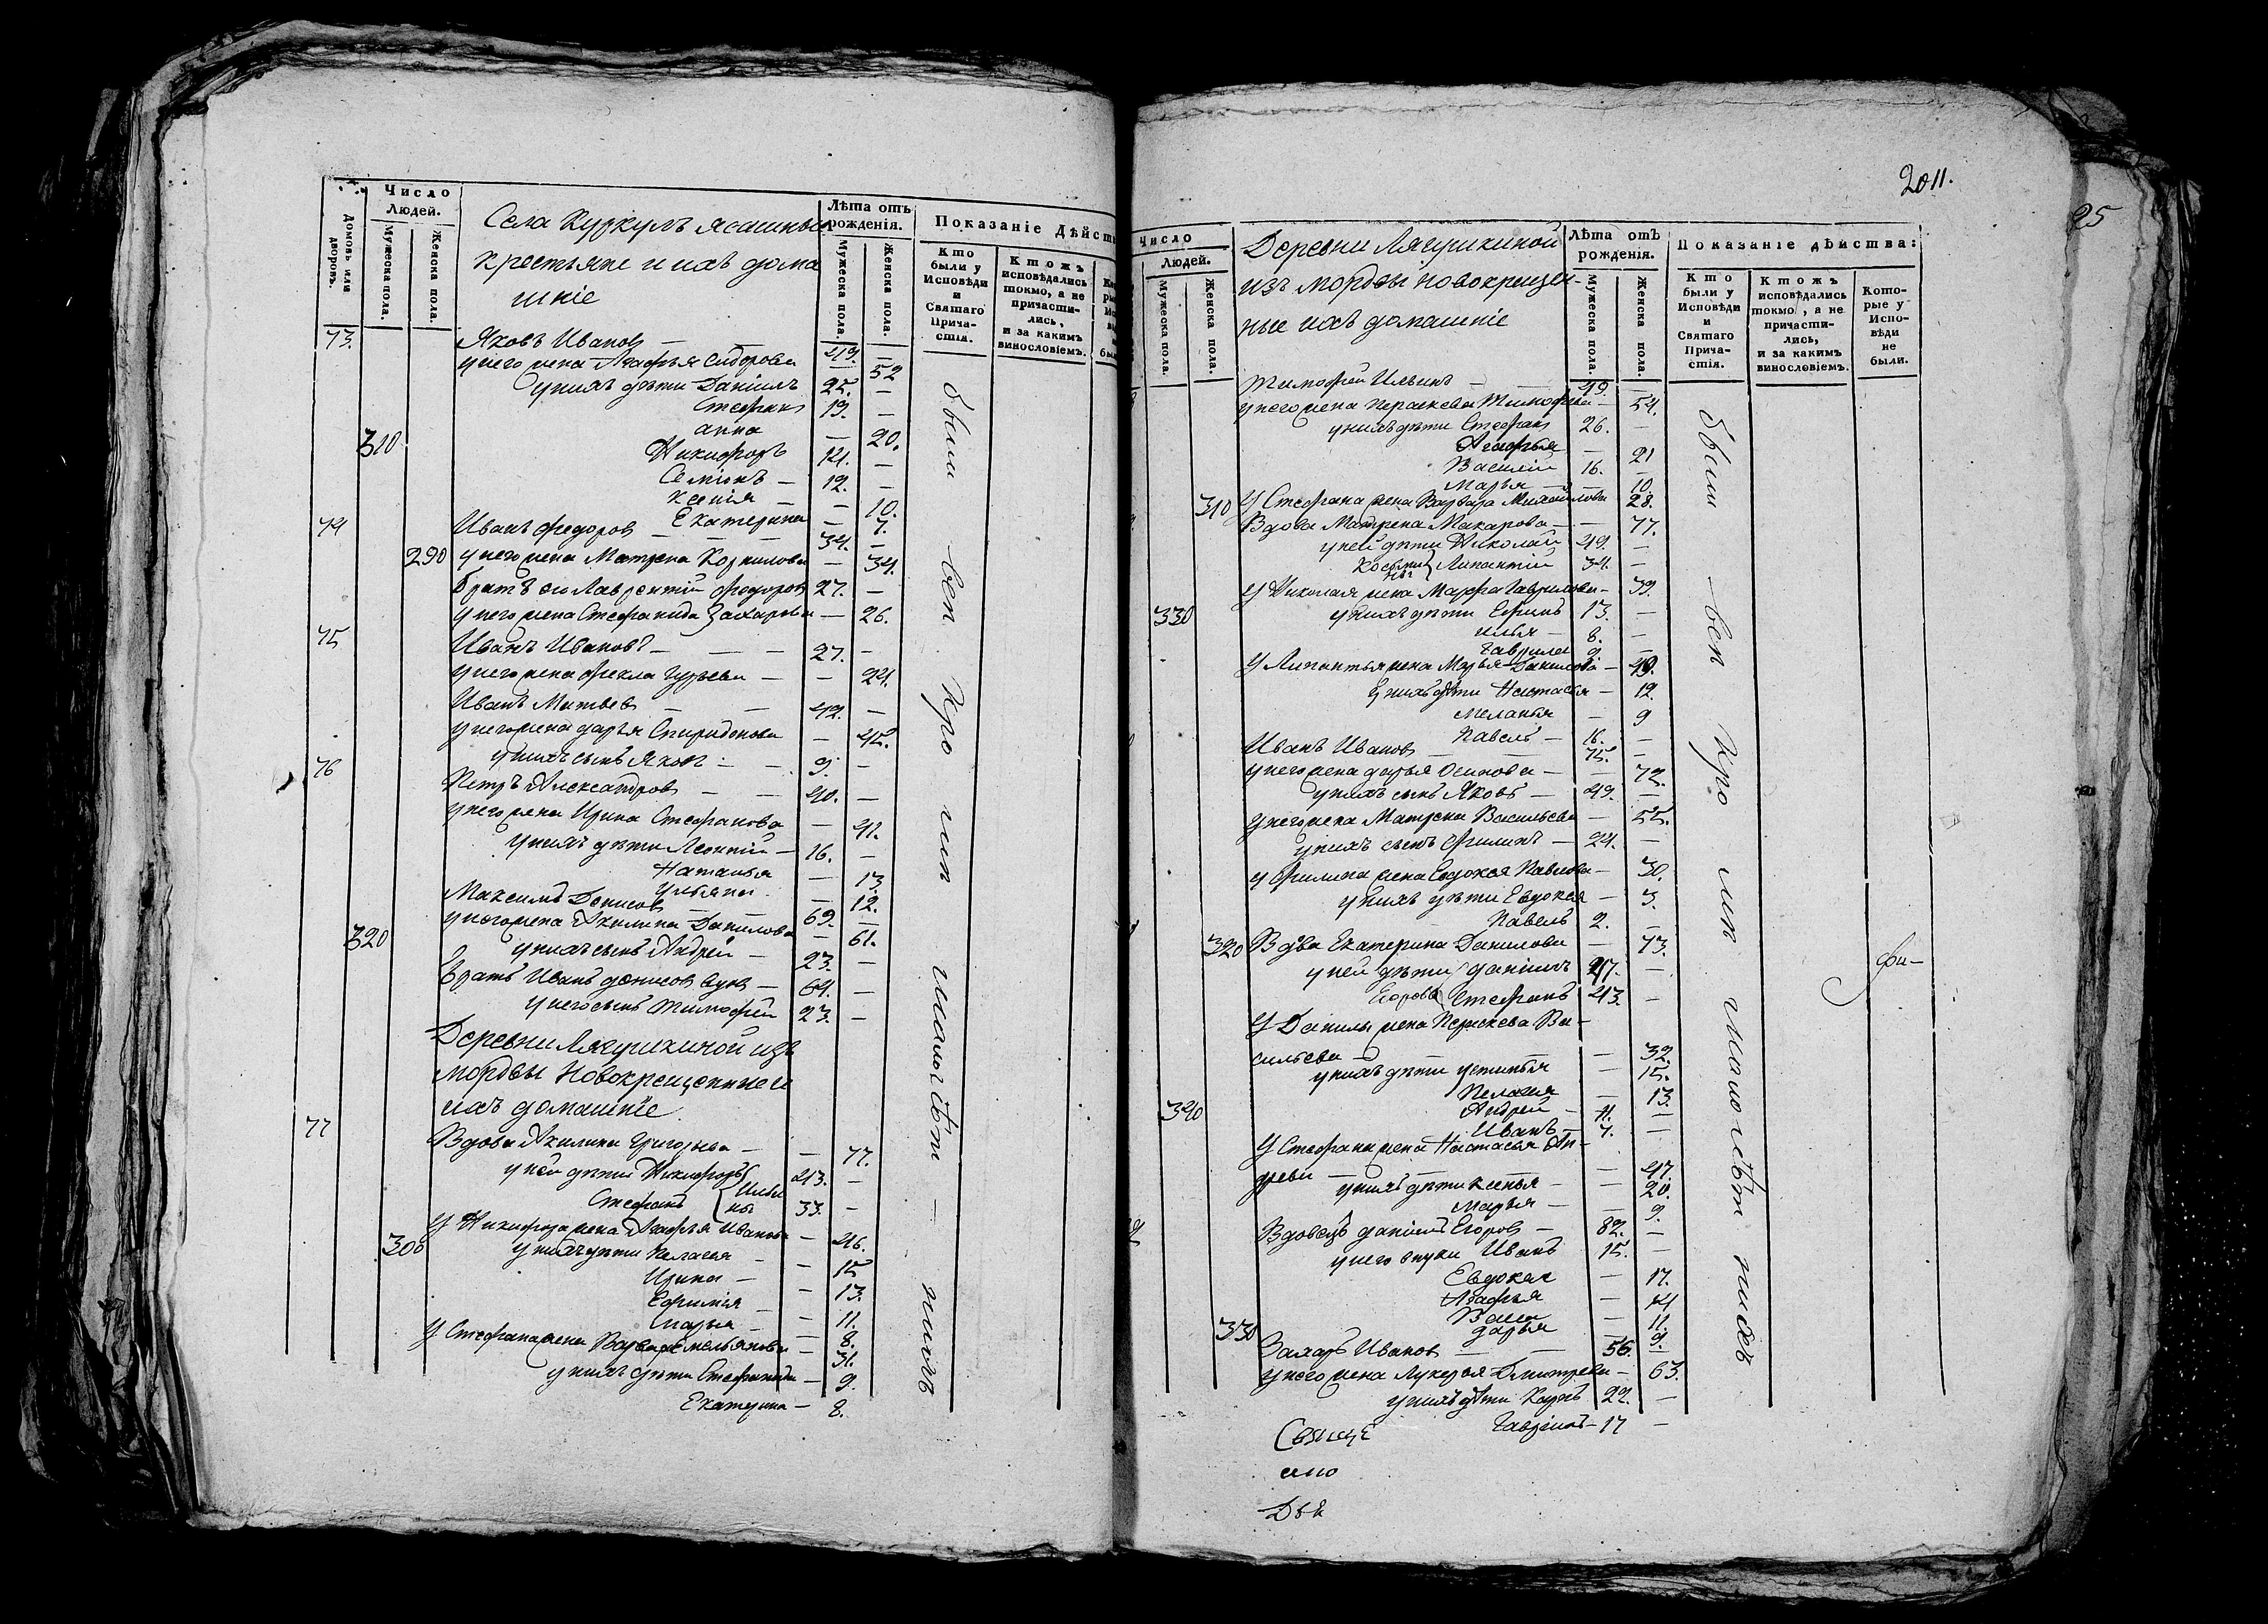 Домовъ или дворовъ.
Число Людей.
Мужеска пола.
Женска пола.
Села Куркулъ ясашныя
крестьяне и ихъ дома
шніе
Лѣта отъ рожденія.
Мужеска пола.
Женска пола.
Показаніе Дѣйст
Кто были у Исповѣди и Святаго Причастія.
Ктожъ исповѣдались токмо, а не причастились, и за какимъ винословіемъ.
73. Яковъ Ивановъ — 49. —
у него жена Агафья Сидорова — 52
у нихъ дѣти Даніилъ 25. —
Стефанъ 19. —
анна — 20.
310 Никифоръ 14. —
Семіонъ — 12. —
Ксенія — — 10.
Екатерина — 7.
74 Иванъ Федоровъ — 34. —
290 у него жена Матрена Корнилова — 34.
братъ его Лаврентій Федоровъ 27. —
у него жена Стефанида Захарова — 26.
75 Иванъ Ивановъ — 27. —
у него жена Фекла Гурьева — — 24.
Иванъ Матвеев — 42. —
у него жена дарья Спиридонова — 45.
у нихъ сынъ Яков — 9. —
76 Петръ Александровъ — 40. —
у него жена Ирина Стефанова — 41.
у нихъ дѣти Леонтій — 16. —
Наталья — 13.
Ульяна — 12.
Максимъ Денисовъ 69. —
у него жена Акилина Данилова — 61.
320 у нихъ сынъ Андрей — 23. —
братъ Иванъ денисов 64. —
у него сынъ Тимофей 23. —
Деревни Лягушкиной изъ
мордвы Новокрещенные и
ихъ домашніе
77 Вдова Акилина Григорьева — — 77.
у ней дѣти Никифоръ 43. —
Стефанъ Ильи
ны 33. —
У Никифора жена Агафья Иванова — 46.
300 у нихъ дѣти Пелагея — — 15
Ирина — — 13.
Ефимія — — 11.
Марья — — 8.
У Стефана жена Варвара Емельянова — 31.
у нихъ дѣти Стефанида — 9.
Екатерина — 8.
были
2011.
25
Число Людей.
Мужеска пола.
Женска пола.
Деревни Лягушкиной
изъ мордвы новокрещен-
ные ихъ домашніе
Лѣта отъ рожденія.
Мужеска пола.
Женска пола.
Показаніе дѣйства:
Кто были у Исповѣди и Святаго Причастія.
Ктожъ исповѣдались токмо, а не причастились, и за какимъ винословіемъ.
Которые у Исповѣди не были.
Тимофей Ильинъ — 49. —
у него жена Параскева Тимофева — 54.
у нихъ дѣти Стефанъ 26. —
Агафья — 21
Василій 16. —
Марья — — 10
310 У Стефана жена Варвара Михайлова 28.
Вдова Матрена Макарова — — 77.
у ней дѣти Николай 49. —
Косьми
ны Липантій 34. —
У Николая жена Марфа Гаврилова — 39.
330 у нихъ дѣти Ефимъ 13. —
илья — 8. —
Гаврила 9. —
У Липантья жена Марья Данилова —
у нихъ дѣти Настасья — 12
Меланья — 9
Павелъ — 16. —
Иванъ Ивановъ — 75. —
у него жена дарья Осипова — — 72.
у нихъ сынъ Яковъ — 49. —
у него жена Матрена Васильева — 55.
у нихъ сынъ Филипъ — 24. —
у Филипа жена Евдокея Павлова — 30.
у нихъ дѣти Евдокея — 3.
Павелъ 2. —
320 Вдова Екатерина Данилова — 73.
у ней дѣти даніилъ 47. —
Егоровы Стефанъ 43. —
У Данилы жена Параскева Ва-
сильева — — 32.
у нихъ дѣти устинья — 15.
Пелагея — 13.
340 Андрей — 11. —
Иванъ — 7. —
У Стефана жена Настасья Ан-
древа — — 47.
у нихъ дѣти ксенья — — 20.
Марья — — 9.
Вдовецъ даніилъ Егоровъ — 82. —
у него внуки Иванъ 15. —
Евдокея — 17.
Агафья — 14
Васса — 11.
330 дарья — 9.
Захаръ Ивановъ — 56. —
у него жена Лукерья Дмитрева — 63.
у нихъ дѣти Карпъ 22. —
Гавріилъ — 17 —
были
фи—
Свяще